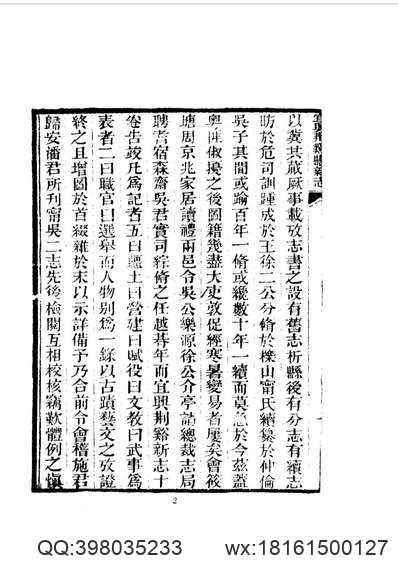 以冀其蕆厥事載攷志書之設有舊志析縣後有分志有續志
昉於危司訓踵成於王徐二公分脩於櫟山甯氏續纂於仲倫
吳子其間或踰百年一脩或纔數十年一續而莫急於今茲蓋
奧開俶擾之後圖籍幾盡大吏敦促經寒暑變易者屢矣會筱
塘周京兆家居讀禮兩邑令吳公樂源徐公介亭請總裁志局
聘耆宿森齋吳君實司綜脩之任越朞年而宜興荆谿新志十
卷告竣凡為記者五曰疆土曰營建曰賦役曰文教曰武事為
表者二曰職官曰選舉而人物別為一錄以古蹟藝文之攷證
終之且增圖於首綴雜於末以示詳備予乃合前令會稽施君
歸安潘君所刊甯吳二志先後檢閱互相校核竊歎體例之慎
2
QQ:398035233 wx:18161500127